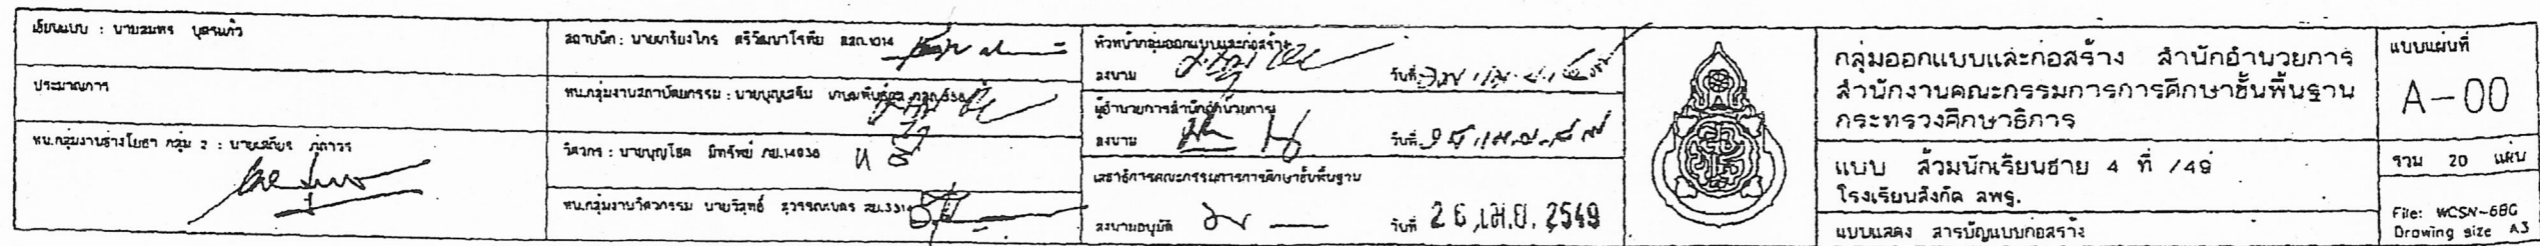 เขียนแบบ : นายสมพร บุตรแก้ว
ประมาณการ
หน.กลุ่มงานช่างโยธา กลุ่ม 2 : นายเสถียร
สถาปนิก : นายเกรียงไกร ศรีวัฒนาโรทัย สสถ.1014
หน.กลุ่มงานสถาปัตยกรรม : นายบุญเสริม
วิศวกร : นายบุญโชค มีทรัพย์ ภย.14936
หน.กลุ่มงานวิศวกรรม นายวิสุทธิ์ สุวรรณะบตร สย.3314
หัวหน้ากลุ่มออกแบบและก่อสร้าง
ลงนาม วันที่
ผู้อำนวยการสำนักอำนวยการ
ลงนาม วันที่
เลขาธิการคณะกรรมการการศึกษาขั้นพื้นฐาน
ลงนามอนุมัติ วันที่ 26 เม.ย. 2549
กลุ่มออกแบบและก่อสร้าง สำนักอำนวยการ
สำนักงานคณะกรรมการการศึกษาขั้นพื้นฐาน
กระทรวงศึกษาธิการ
แบบ ส้วมนักเรียนชาย 4 ที่ /49
โรงเรียนสังกัด สพฐ.
แบบแสดง สารบัญแบบก่อสร้าง
แบบแผ่นที่
A-00
รวม 20 แผ่น
File: WCSN-68G
Drawing size A3